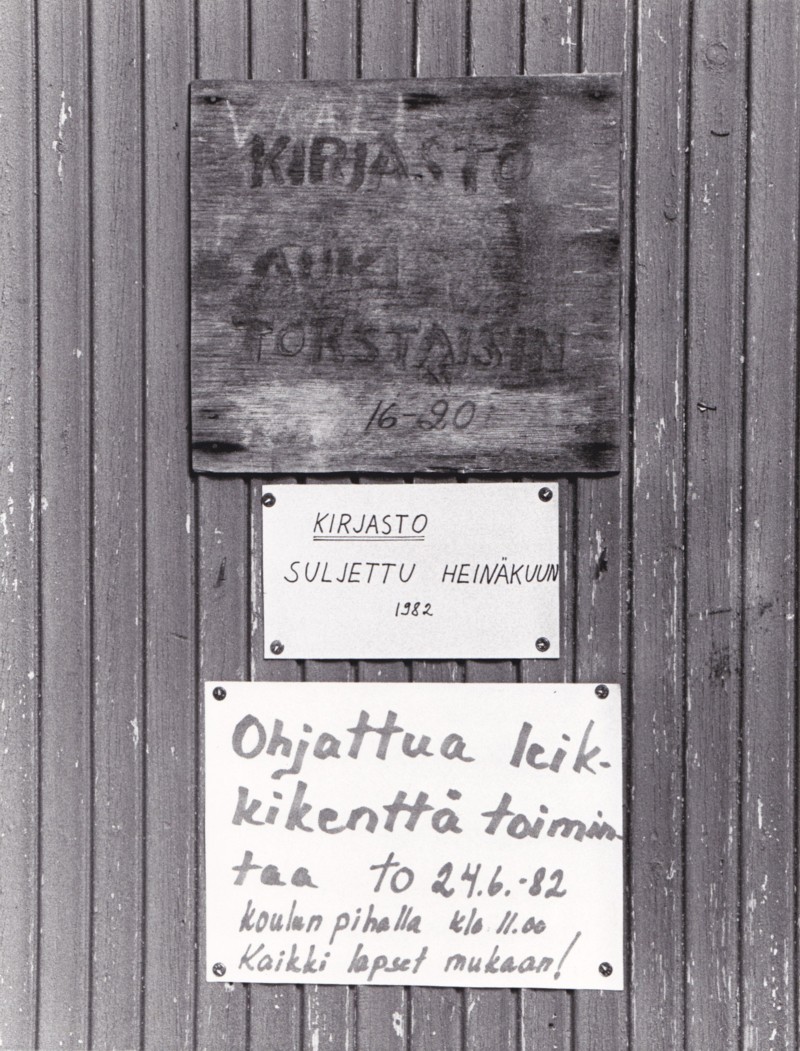 KIRJASTO
AUKI
TORSTAISIN
16-20
KIRJASTO
SULJETTU HEINÄKUUN
1982
Ohjattua leik-
kikenttä toimin-
taa to 24.6.-82
Koulun pihalla klo 11.00
Kaikki lapset mukaan!